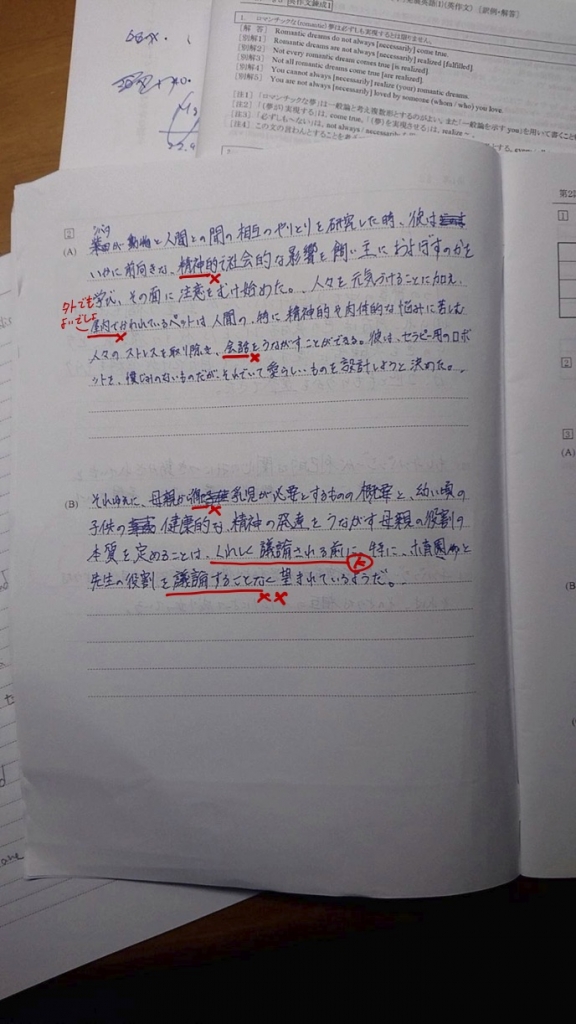 英作文錬成1
(英作文) [訳例・解答]
1. ロマンチックな(romantic)夢は必ずしも実現するとは限りません。
[解 答] Romantic dreams do not always [necessarily] come true.
[別解1] Romantic dreams are not always [necessarily] realized [fulfilled].
[別解2] Not every romantic dream comes true [is realized].
[別解3] Not all romantic dreams come true [are realized].
[別解4] You cannot always [necessarily] realize (your) romantic dreams.
[別解5] You are not always [necessarily] loved by someone (whom / who) you love.
[注1] 「ロマンチックな夢」は一般論と考え複数形とするのがよい。また「一般論を示す you」を用いて書くこと
[注2] 「(夢が)実現する」は, come true, 「(夢)を実現させる」は, realize ~
[注3] 「必ずしも~ない」は, not always / necessarily
[注4] この文の言わんとすることを
2
(A) 動物と人間との間の相互のやりとりを研究した時、彼は
いかに前向きな、精神的で社会的な影響を飼い主におよぼすのかを
学び、その面に注意をむけ始めた。人々を元気づけることに加え、
外でも
よいでしょ
屋内でかわれているペットは人間の、特に精神的や肉体的な悩みに苦しむ
人々のストレスを取り除き、会話をうながすことができる。彼は、セラピー用のロボ
ットを、慣じみのないものだが、それでいて愛らしいものを設計しようと決めた。
(B) それゆえに、母親が 乳児が必要とするものの概要と、幼い頃の
子供の 健康的な、精神の発達をうながす母親の役割の
本質を定めることは、くわしく議論される前に、特に、保育園 と
先生の役割を議論することなく望まれているようだ。
第2
1
2
3
(A)
(B